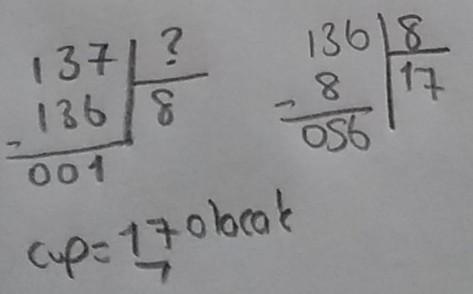 137 ?
- 136 8
001
136 8
- 8 17
056
cvp= 17 olacak